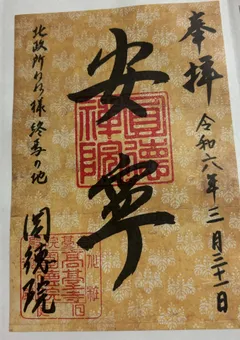 奉拝
令和六年三月二十一日
安寧
圓德
禅院
北政所ねね様終焉の地
圓徳院